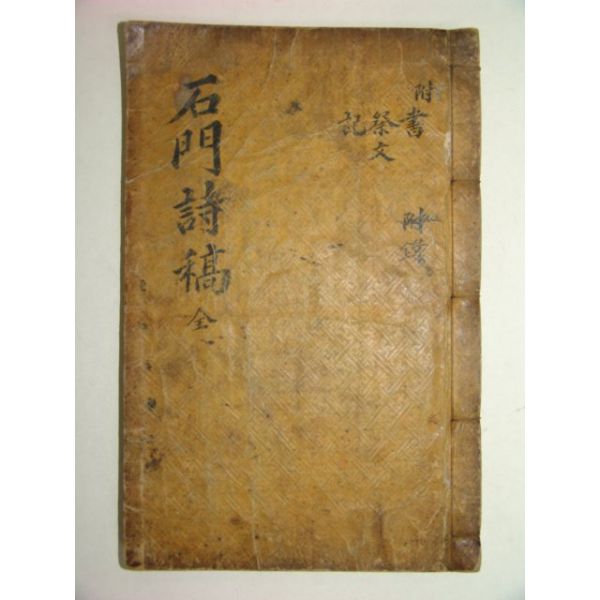 附書
祭文
記
附錄
石門詩稿 全